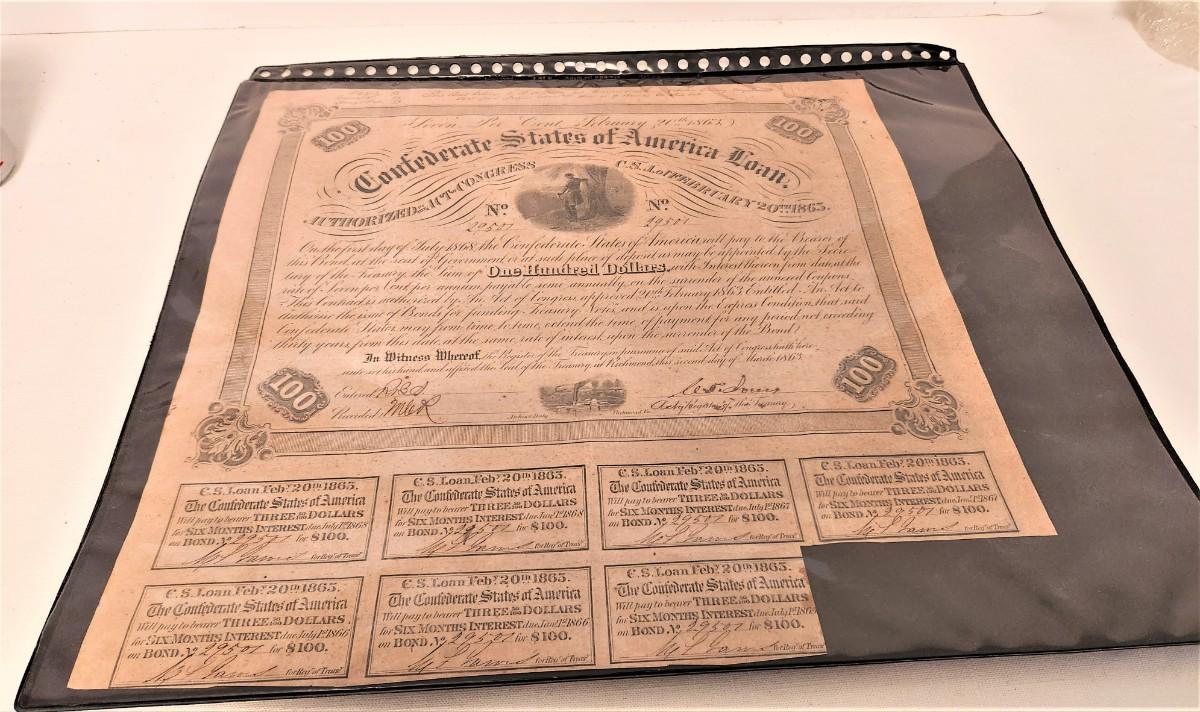 100 100
Seven Per Cent. February 20th 1863.
Confederate States of America Loan.
AUTHORIZED by ACT of CONGRESS C.S.A. of FEBRUARY 20TH 1863.
No No
29501 29501
On the first day of July 1868, the Confederate States of America will pay to the Bearer of
this Bond, at the seat of Government or at such place of deposit as may be appointed by the Secre-
tary of the Treasury the Sum of One Hundred Dollars, with Interest thereon from date, at the
rate of Seven per Cent per annum, payable semi annually, on the surrender of the annexed Coupons.
This Contract is authorized by An Act of Congress, approved 20th February 1863 Entitled "An Act to
authorize the issue of Bonds for funding Treasury Notes," and is upon the Express Condition, that said
Confederate States may from time to time, extend the time of payment for any period, not exceeding
thirty years, from this date, at the same rate of interest, upon the surrender of the Bond.
In Witness Whereof, the Register of the Treasury in pursuance of said Act of Congress hath here-
unto set his hand, and affixed the Seal of the Treasury, at Richmond, this second day of March 1863.
100 100
Entered
Recorded
Register of the Treasury
C.S. Loan Feby. 20th 1863.
The Confederate States of America
Will pay to bearer THREE 50/100 DOLLARS
for SIX MONTHS INTEREST due July 1st 1868
on BOND. No 29501 for $100.
for Reg' of Treas'
C.S. Loan Feby. 20th 1863.
The Confederate States of America
Will pay to bearer THREE 50/100 DOLLARS
for SIX MONTHS INTEREST due Jany 1st 1868
on BOND. No 29501 for $100.
for Reg' of Treas'
C.S. Loan Feby. 20th 1863.
The Confederate States of America
Will pay to bearer THREE 50/100 DOLLARS
for SIX MONTHS INTEREST due July 1st 1867
on BOND. No 29501 for $100.
for Reg' of Treas'
C.S. Loan Feby. 20th 1863.
The Confederate States of America
Will pay to bearer THREE 50/100 DOLLARS
for SIX MONTHS INTEREST due Jany 1st 1867
on BOND. No 29501 for $100.
for Reg' of Treas'
C.S. Loan Feby. 20th 1863.
The Confederate States of America
Will pay to bearer THREE 50/100 DOLLARS
for SIX MONTHS INTEREST due July 1st 1866
on BOND. No 29501 for $100.
for Reg' of Treas'
C.S. Loan Feby. 20th 1863.
The Confederate States of America
Will pay to bearer THREE 50/100 DOLLARS
for SIX MONTHS INTEREST due Jany 1st 1866
on BOND. No 29501 for $100.
for Reg' of Treas'
C.S. Loan Feby. 20th 1863.
The Confederate States of America
Will pay to bearer THREE 50/100 DOLLARS
for SIX MONTHS INTEREST due July 1st
on BOND. No 29501 for $100.
for Reg' of Treas'